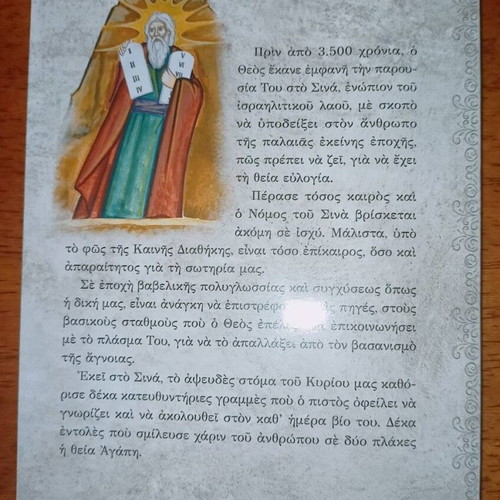 I
II
III
IV
V
VI
VII
Πρὶν ἀπὸ 3.500 χρόνια, ὁ
Θεὸς ἔκανε ἐμφανῆ τὴν παρου-
σία Του στὸ Σινά, ἐνώπιον τοῦ
ἰσραηλιτικοῦ λαοῦ, μὲ σκοπὸ
νὰ ὑποδείξει στὸν ἄνθρωπο
τῆς παλαιᾶς ἐκείνης ἐποχῆς,
πῶς πρέπει νὰ ζεῖ, γιὰ νὰ ἔχει
τὴ θεία εὐλογία.
Πέρασε τόσος καιρὸς καὶ
ὁ Νόμος τοῦ Σινὰ βρίσκεται
ἀκόμη σὲ ἰσχύ. Μάλιστα, ὑπὸ
τὸ φῶς τῆς Καινῆς Διαθήκης, εἶναι τόσο ἐπίκαιρος, ὅσο καὶ
ἀπαραίτητος γιὰ τὴ σωτηρία μας.
Σὲ ἐποχὴ βαβελικῆς πολυγλωσσίας καὶ συγχύσεως ὅπως
ἡ δική μας, εἶναι ἀνάγκη νὰ πηγές, στοὺς
βασικοὺς σταθμοὺς ποὺ ὁ Θεὸς ἐπικοινωνήσει
μὲ τὸ πλάσμα Του, γιὰ νὰ τὸ ἀπαλλάξει ἀπὸ τὸν βασανισμὸ
τῆς ἄγνοιας.
Ἐκεῖ στὸ Σινά, τὸ ἀψευδὲς στόμα τοῦ Κυρίου μας καθό-
ρισε δέκα κατευθυντήριες γραμμὲς ποὺ ὁ πιστὸς ὀφείλει νὰ
γνωρίζει καὶ νὰ ἀκολουθεῖ στὸν καθ' ἡμέρα βίο του. Δέκα
ἐντολὲς ποὺ σμίλευσε χάριν τοῦ ἀνθρώπου σὲ δύο πλάκες
ἡ θεία Ἀγάπη.